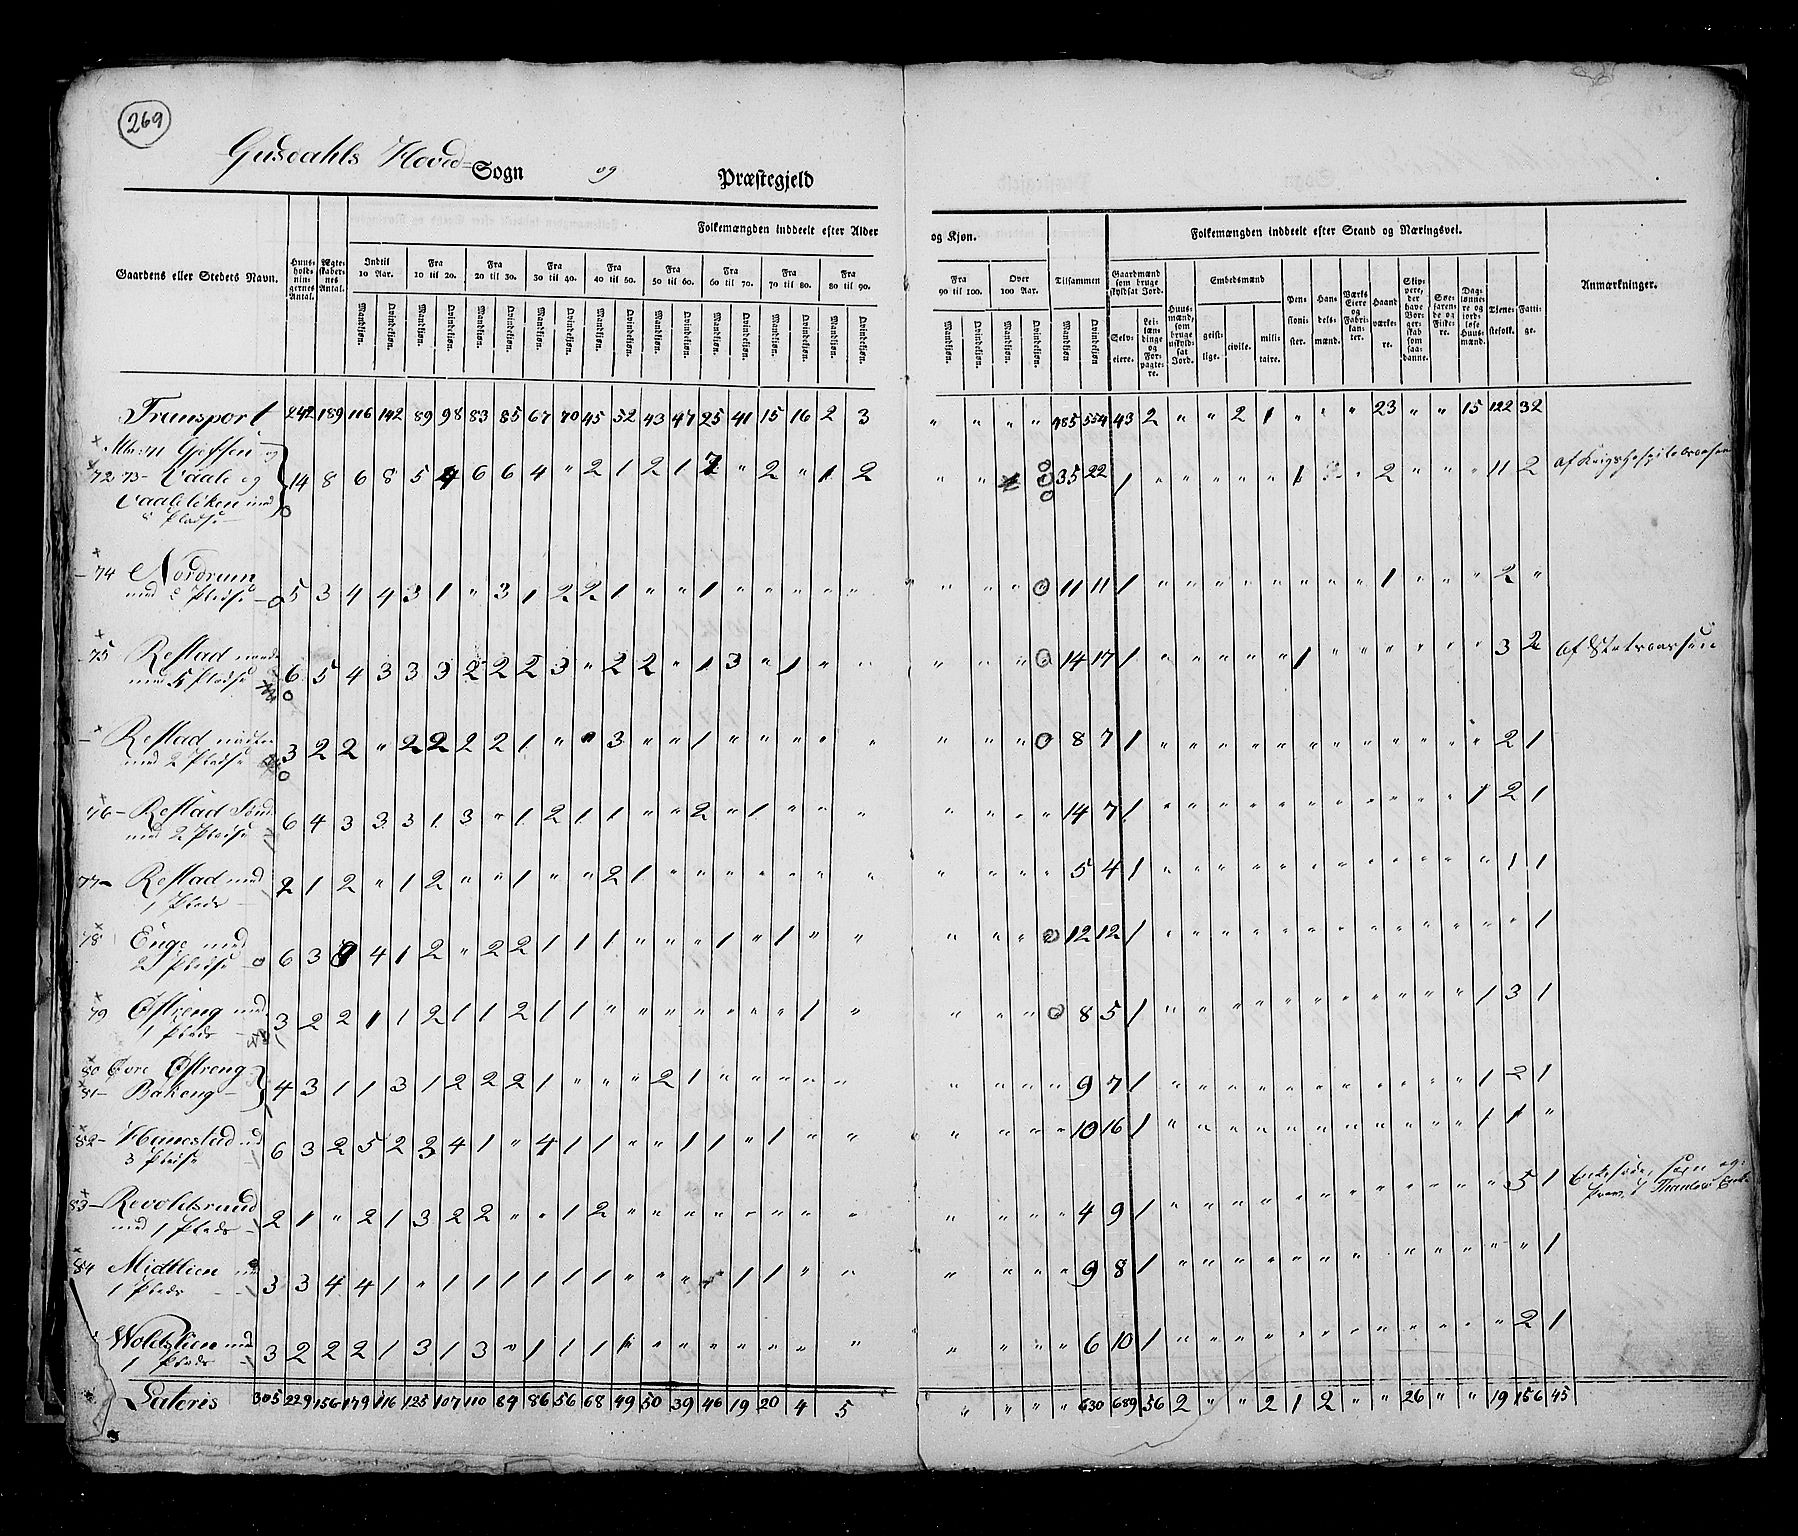 269
Gusdahls Hoved= Sogn og Præstegjeld
Folkemængden inddeelt efter Alder og Kjøn.
Folkemængden inddeelt efter Stand og Næringsvei.
Gaardens eller Stedets Navn.
Huus-holdnin-gernes Antal.
Ægte-skaber-nes Antal.
Indtil 10 Aar.
Fra 10 til 20.
Fra 20 til 30.
Fra 30 til 40.
Fra 40 til 50.
Fra 50 til 60.
Fra 60 til 70.
Fra 70 til 80.
Fra 80 til 90.
Fra 90 til 100.
Over 100 Aar.
Tilsammen
Mandkjøn. Qvindekjøn.
Gaardmænd som bruge skyldsat Jord.
Selv-eiere.
Lei-læn-dinge og For-pagte-re.
Huus-mænd, som bruge uskyld-sat Jord.
Embedsmænd
geist-lige.
civile.
mili-taire.
Pen-sioni-ster.
Han-dels-mænd.
Værks Eiere og Fabri-kan-ter.
Haand-værke-re.
Skip-pere, der have Bor-ger-skab som saa-danne.
Søe-faren-de og Fiske-re.
Dag-lønne-re og jord-løse Huus-mænd.
Tjene-stefolk.
Fatti-ge.
Anmærkninger.
Transport 242 189 116 142 89 98 83 85 67 70 45 52 43 47 25 41 15 16 2 3 " " " " 485 554 43 2 " " 2 1 " " " 23 " " 15 122 32
72 73- Vaale og 14 8 6 8 5 4 6 6 4 " 2 1 2 1 7 " 2 " 1 2 35 22 1 " " " " " 1 " 2 " " " 11 2
Vaaleløken med
8 Pladse
74 Nordrum
med 2 Pladse 5 3 4 4 3 1 " 3 1 2 2 1 " " 1 " " " " " " " " 11 11 1 " " " " " " " " 1 " " " 2 "
75 Restad
med 5 Pladse 6 5 4 3 3 3 2 2 2 3 " 2 2 " 1 3 " 1 " " " " " 14 17 1 " " " " " 1 " " " " " " 3 2
Restad
med 2 Pladse 3 2 2 " 2 2 2 2 1 " " 3 " " 1 " " " " " " " " 8 7 1 " " " " " " " " " " " " 2 1
76- Restad
med 2 Pladse 6 4 3 3 3 1 3 " 1 2 1 1 " " 2 " 1 " " " " " " " 14 7 1 " " " " " " " " " " " 1 2 1
77- Restad med
1 Plads 2 1 2 " 1 2 " " 1 " " 2 1 " " " " " " " " " " " 5 4 1 " " " " " " " " " " " " 1 1
78 Enge med
2 Pladse 6 3 9 4 1 2 " 2 2 1 1 1 " " " 1 " 1 " " " " " 12 12 1 " " " " " " " " " " " " " 1
79 Østreng med
1 Plads 3 2 2 1 1 2 1 1 2 1 1 " " " " " " " 1 " " " " 8 5 1 " " " " " " " " " " " 1 3 1
80 Øvre Østreng
81- Bakeng 4 3 1 1 3 1 2 2 2 1 " " " 2 1 " " " " " " " " " 9 7 1 " " " " " " " " " " " 1 2 1
82- Hanestad
3 Pladse 6 3 2 5 2 3 4 1 " 4 1 1 " " 1 1 " 1 " " " " " " 10 16 1 " " " " " " " " " " " 1 1 "
83- Revoldsrud
med 1 Plads 2 1 " 2 1 3 2 2 " " 1 2 " " " " " " " " " " " " 4 9 1 " " " " " " " " " " " " 5 1
84 Midtlien
1 Plads 3 3 4 4 1 " 1 1 1 1 1 1 " " " " 1 1 " " " " " " 9 8 1 " " " " " " " " " " " " " 1
Woldslien
1 Plads 3 2 2 2 1 3 1 3 " 1 1 1 1 " " " " " " " " " " " 6 10 1 " " " " " " " " " " " " 2 1
Lateris 305 229 156 179 116 125 107 110 89 86 56 68 49 50 39 46 19 20 4 5 " " " " 630 689 56 2 " " 2 1 2 " " 26 " " 19 156 45